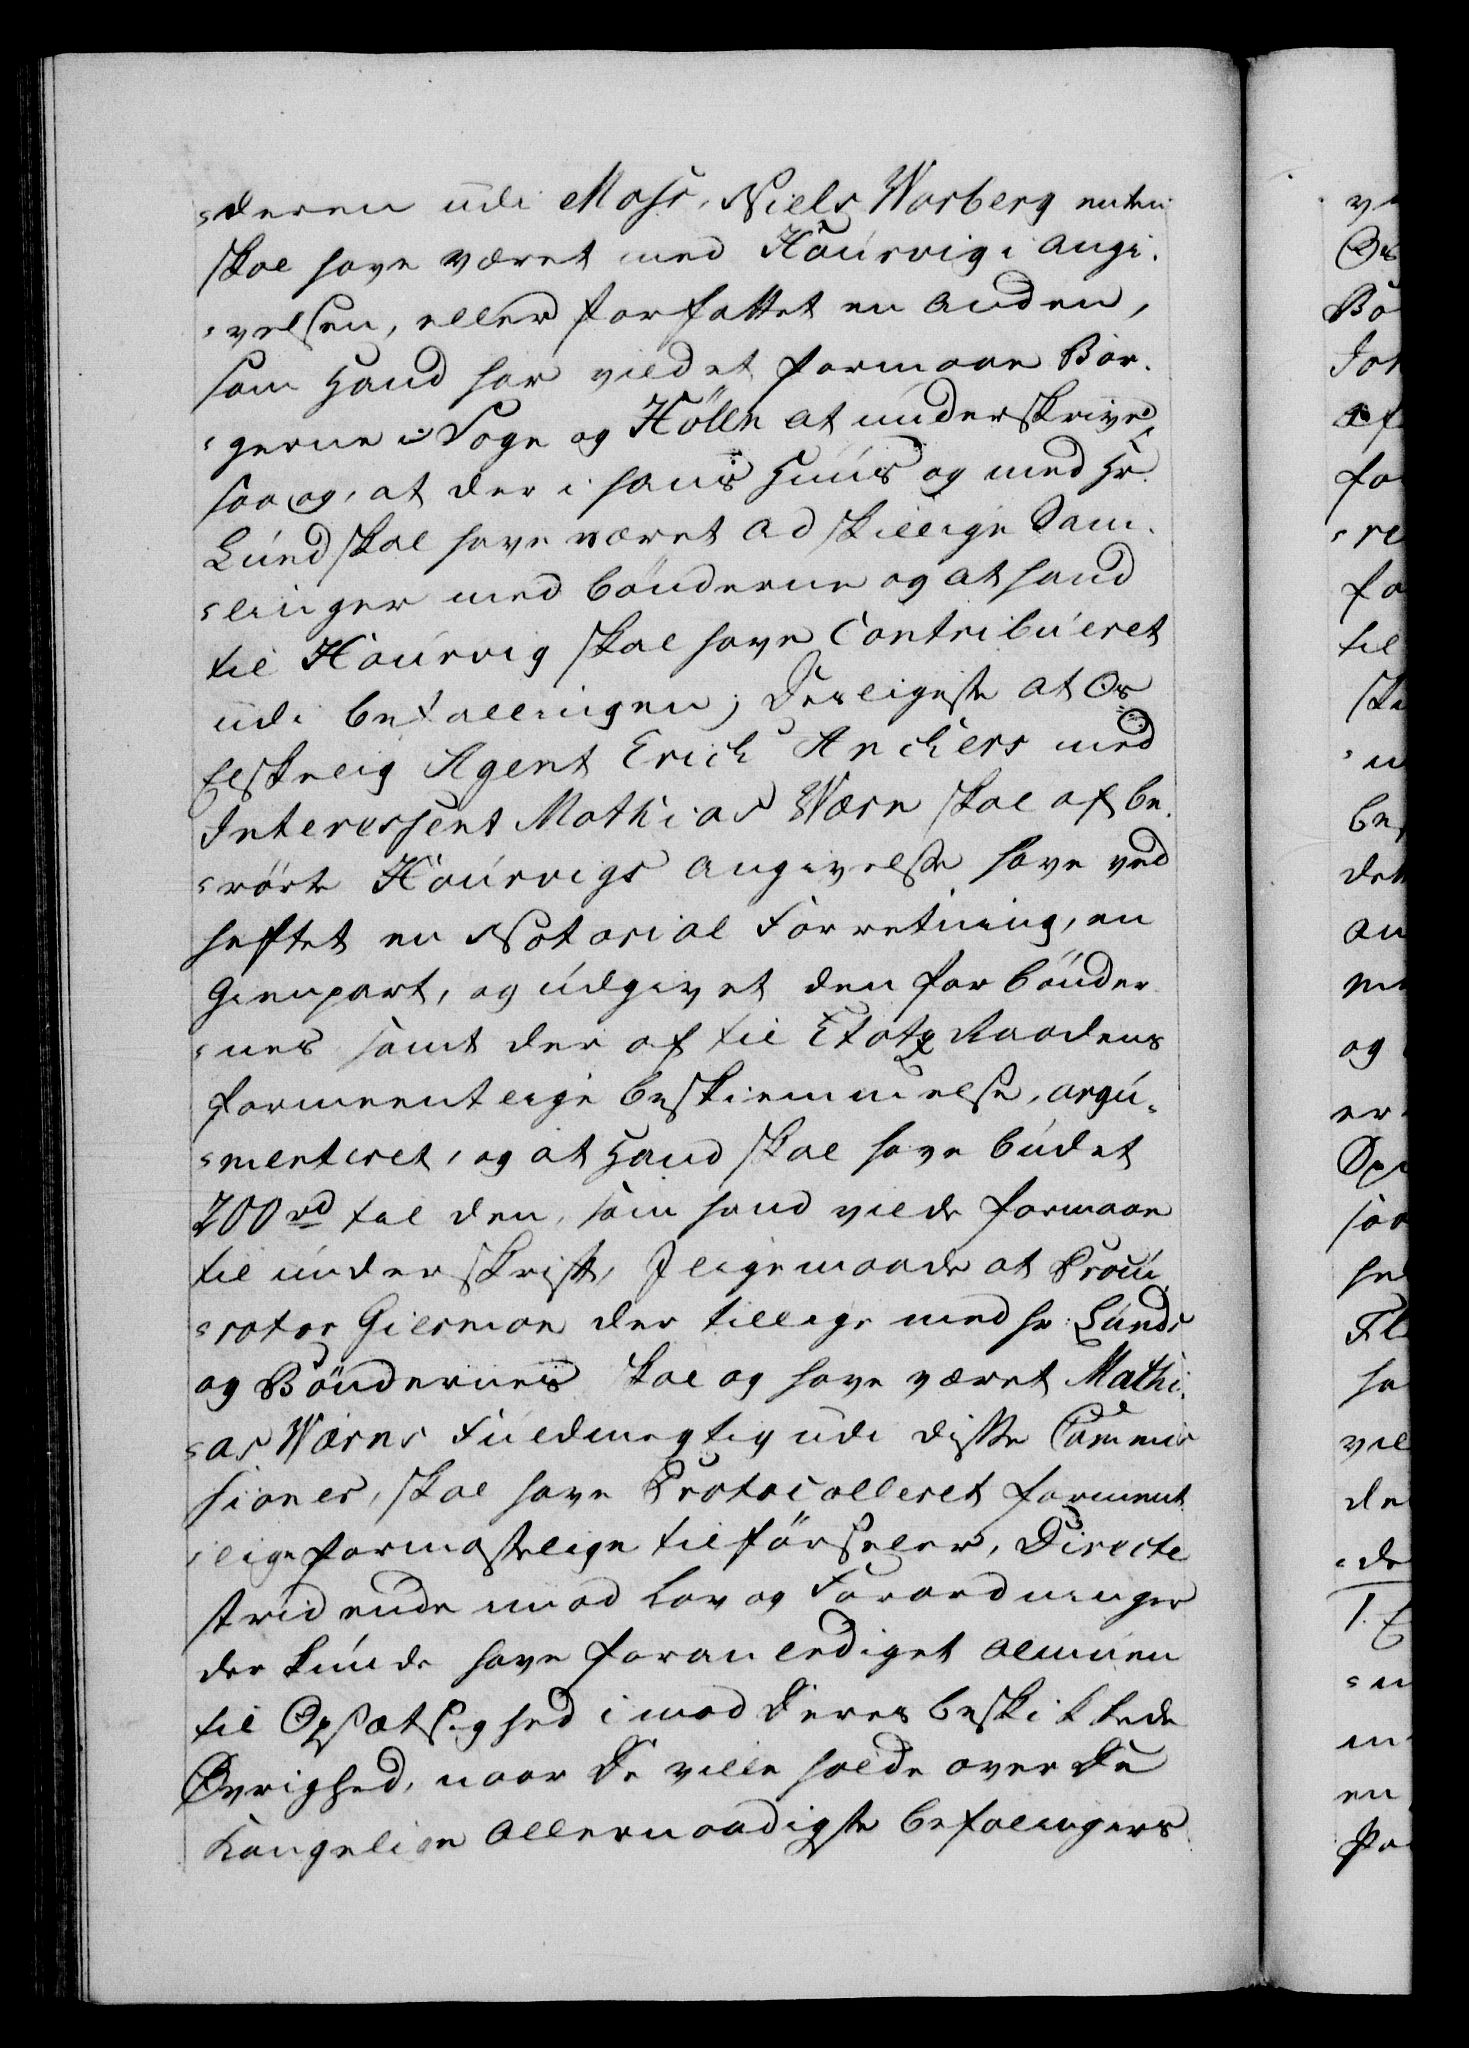 -deren udi Moss, Niels Warberg enten
skal have været med Houcvig i angi-
-velsen, eller forfattet en anden,
som Hand har vildet formaae Bor-
-gerne i Soge og Hölen at underskrive,
saa og, at der i hans Huus og med Hr.
Lund skal have været adskillige Sam-
-linger med bönderne og at hand
til Hourvig skal have Contribueret
udi betallingen; Desligeste at Os
Elskelig Agent Erich Anchers med
Interessent Mathias Wærn skal af be-
-rörte Hourvigs angivelse have ved
heftet en Notarial Forretning, en
Gienpart, og udgivet den for bönder
-nes samt der af til Etatz Raadens
formeentlige beskiemmelse, argu-
-menteret, og at Hand skal have budet
200 rd til den, som hand vilde formaae
til underskrift, I ligemaade at Procu
-rator Gierman der tillige med hr. Lunds
og Böndernes skal og have været Mathi-
-as Wærns Fuldmægtig udi disse Commis
sioner, skal have Protocolleret forment
-lige formastelige tilförseler, Directe
stridende imod Lov og Forordninger
der kunde have foranlediget Almuen
til Opsætsighed imod Deres beskikkede
Øvrighed, naar De ville holde over De
Kongelige Allernaadigste befalingers